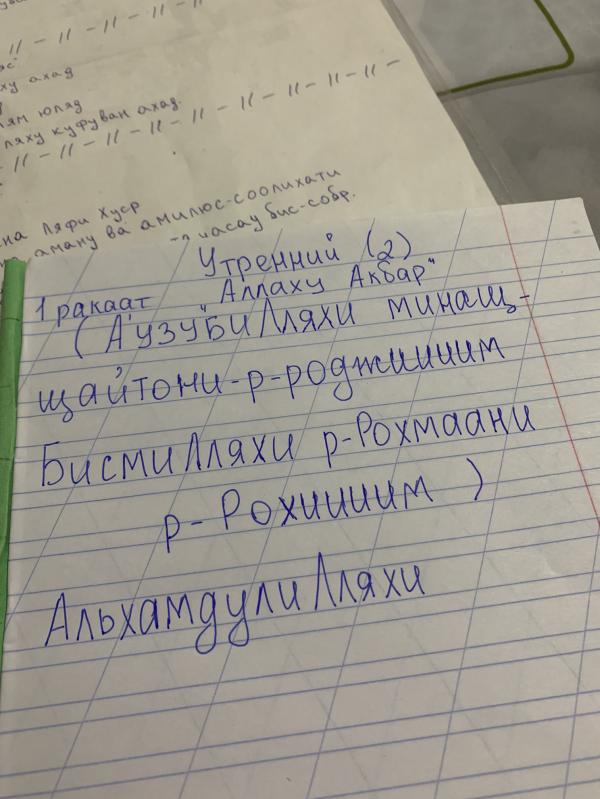 ху ахад
лям юляд
ляху куфуван ахад.
на Ляфи Хуср
аману ва амилюс-соолихати
бис-собр.
Утренний (2)
1 ракаат Аллаху Акбар"
(А'узу"биЛляхи минащ-
щайтони-р-роджииим
БисмиЛляхи р-Рохмаани
р-Рохииим )
АльхамдулиЛляхи